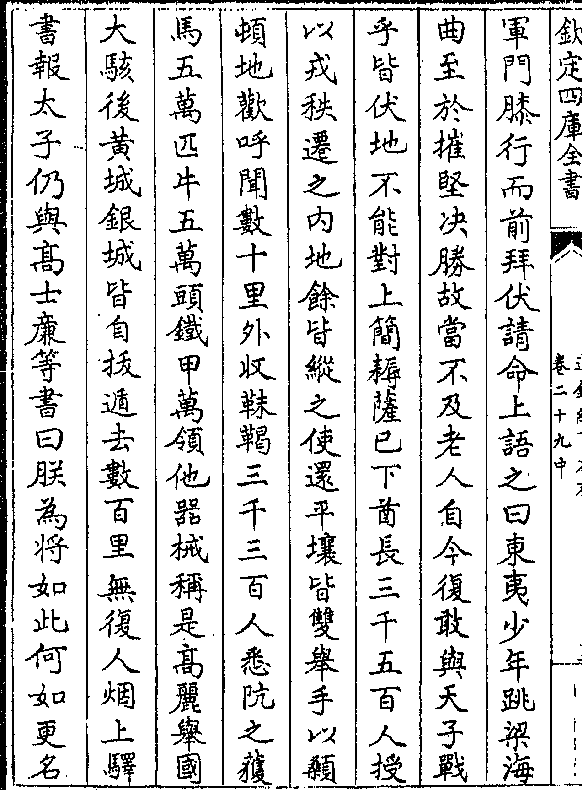 欽定四庫全書
卷二十九中
軍門膝行而前拜伏請命上語之曰東夷少年跳梁海
曲至於摧堅決勝故當不及老人自今復敢與天子戰
乎皆伏地不能對上簡耨薩已下酋長三千五百人授
以戎秩遷之内地餘皆縱之使還平壤皆雙舉手以顙
頓地歡呼聞數十里外收靺鞨三千三百人悉阬之獲
馬五萬匹牛五萬頭鐵甲萬領他器械稱是高麗舉國
大駭後黄城銀城皆自拔遁去數百里無復人烟上驛
書報太子仍與髙士廉等書曰朕為将如此何如更名